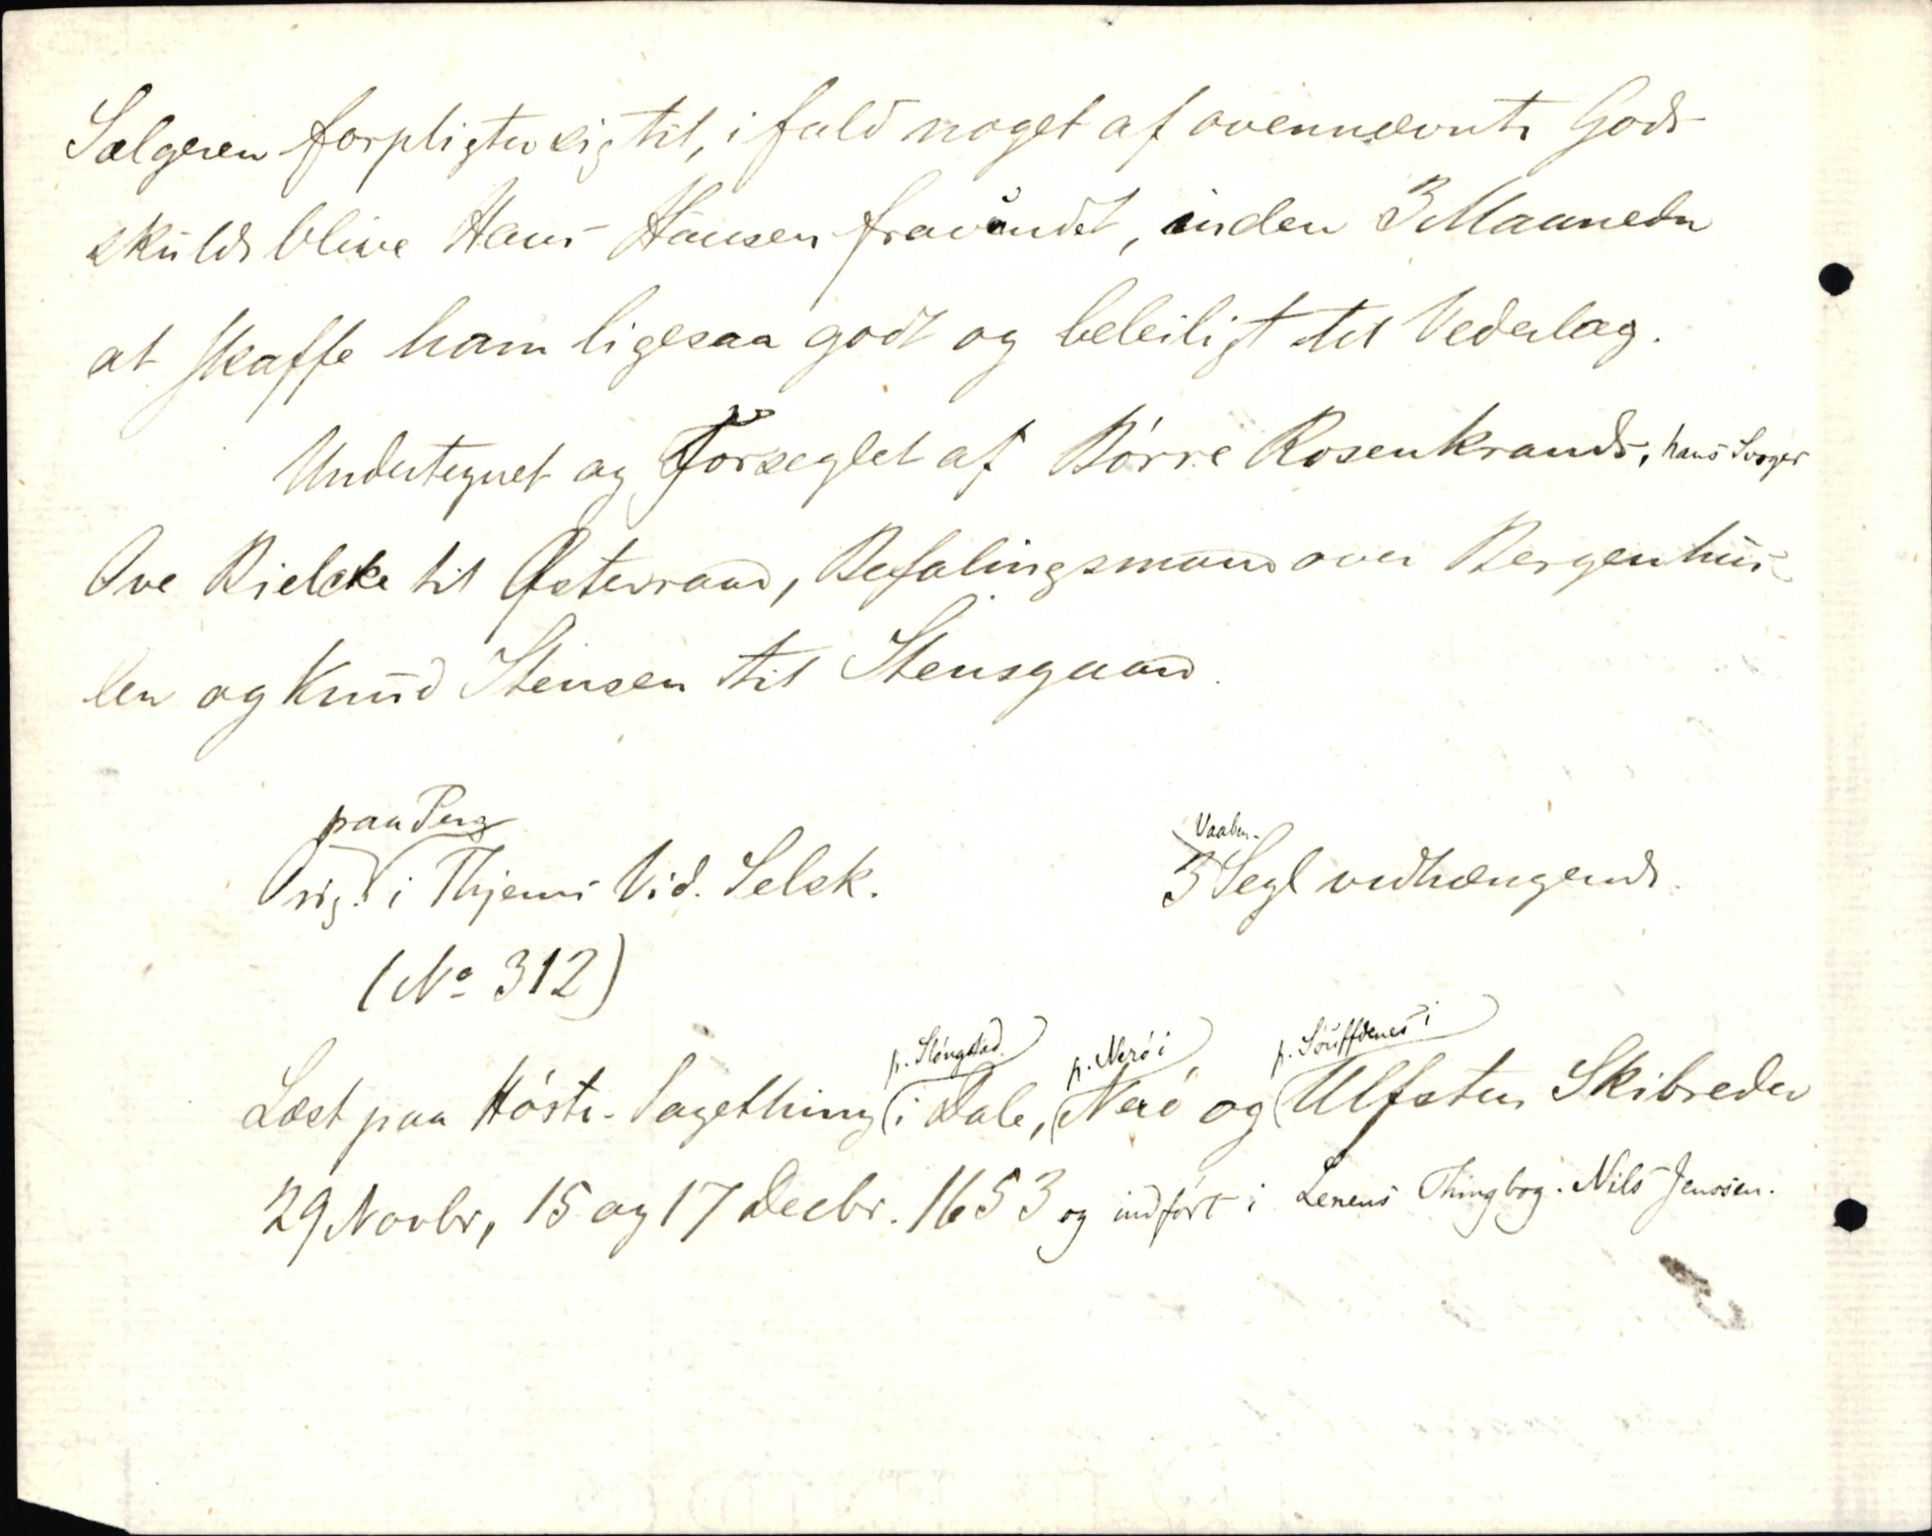 Sælgeren forpligter sig til, i fald noget af ovennævnte Gods
skulde blive Hans Hansen fravundet, inden 3 Maaneder
at skaffe ham ligesaa godt og beleiligt til Vederlag.
Undertegnet og Forseglet af Börre Rosenkrands, hans Svoger
Ove Bielcke til Østeraad, Befalingsmand over Bergenhus
len og Knud Stensen til Stensgaard.
paa Perg Vaaben-
Orig. i Thjems Vid. Selsk. 3 Segl vedhængende.
(No 312)
p. Slöngstad p. Nerö i p. Söuffdenes i
Læst paa Höste-Sagething i Dale, Nerö og Ulfsten Skibreder
29 Novbr, 15 og 17 Decbr. 1653 og indfört i Lenens Thingbog. Nils Jenssen.